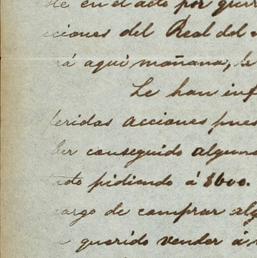 en el acto por
cciones del Real del
rá aqui mañana, le
Le han inf
feridas acciones pues
ber conseguido alguna
pidiendo á $600.
cargo de comprar alg
querido vender á